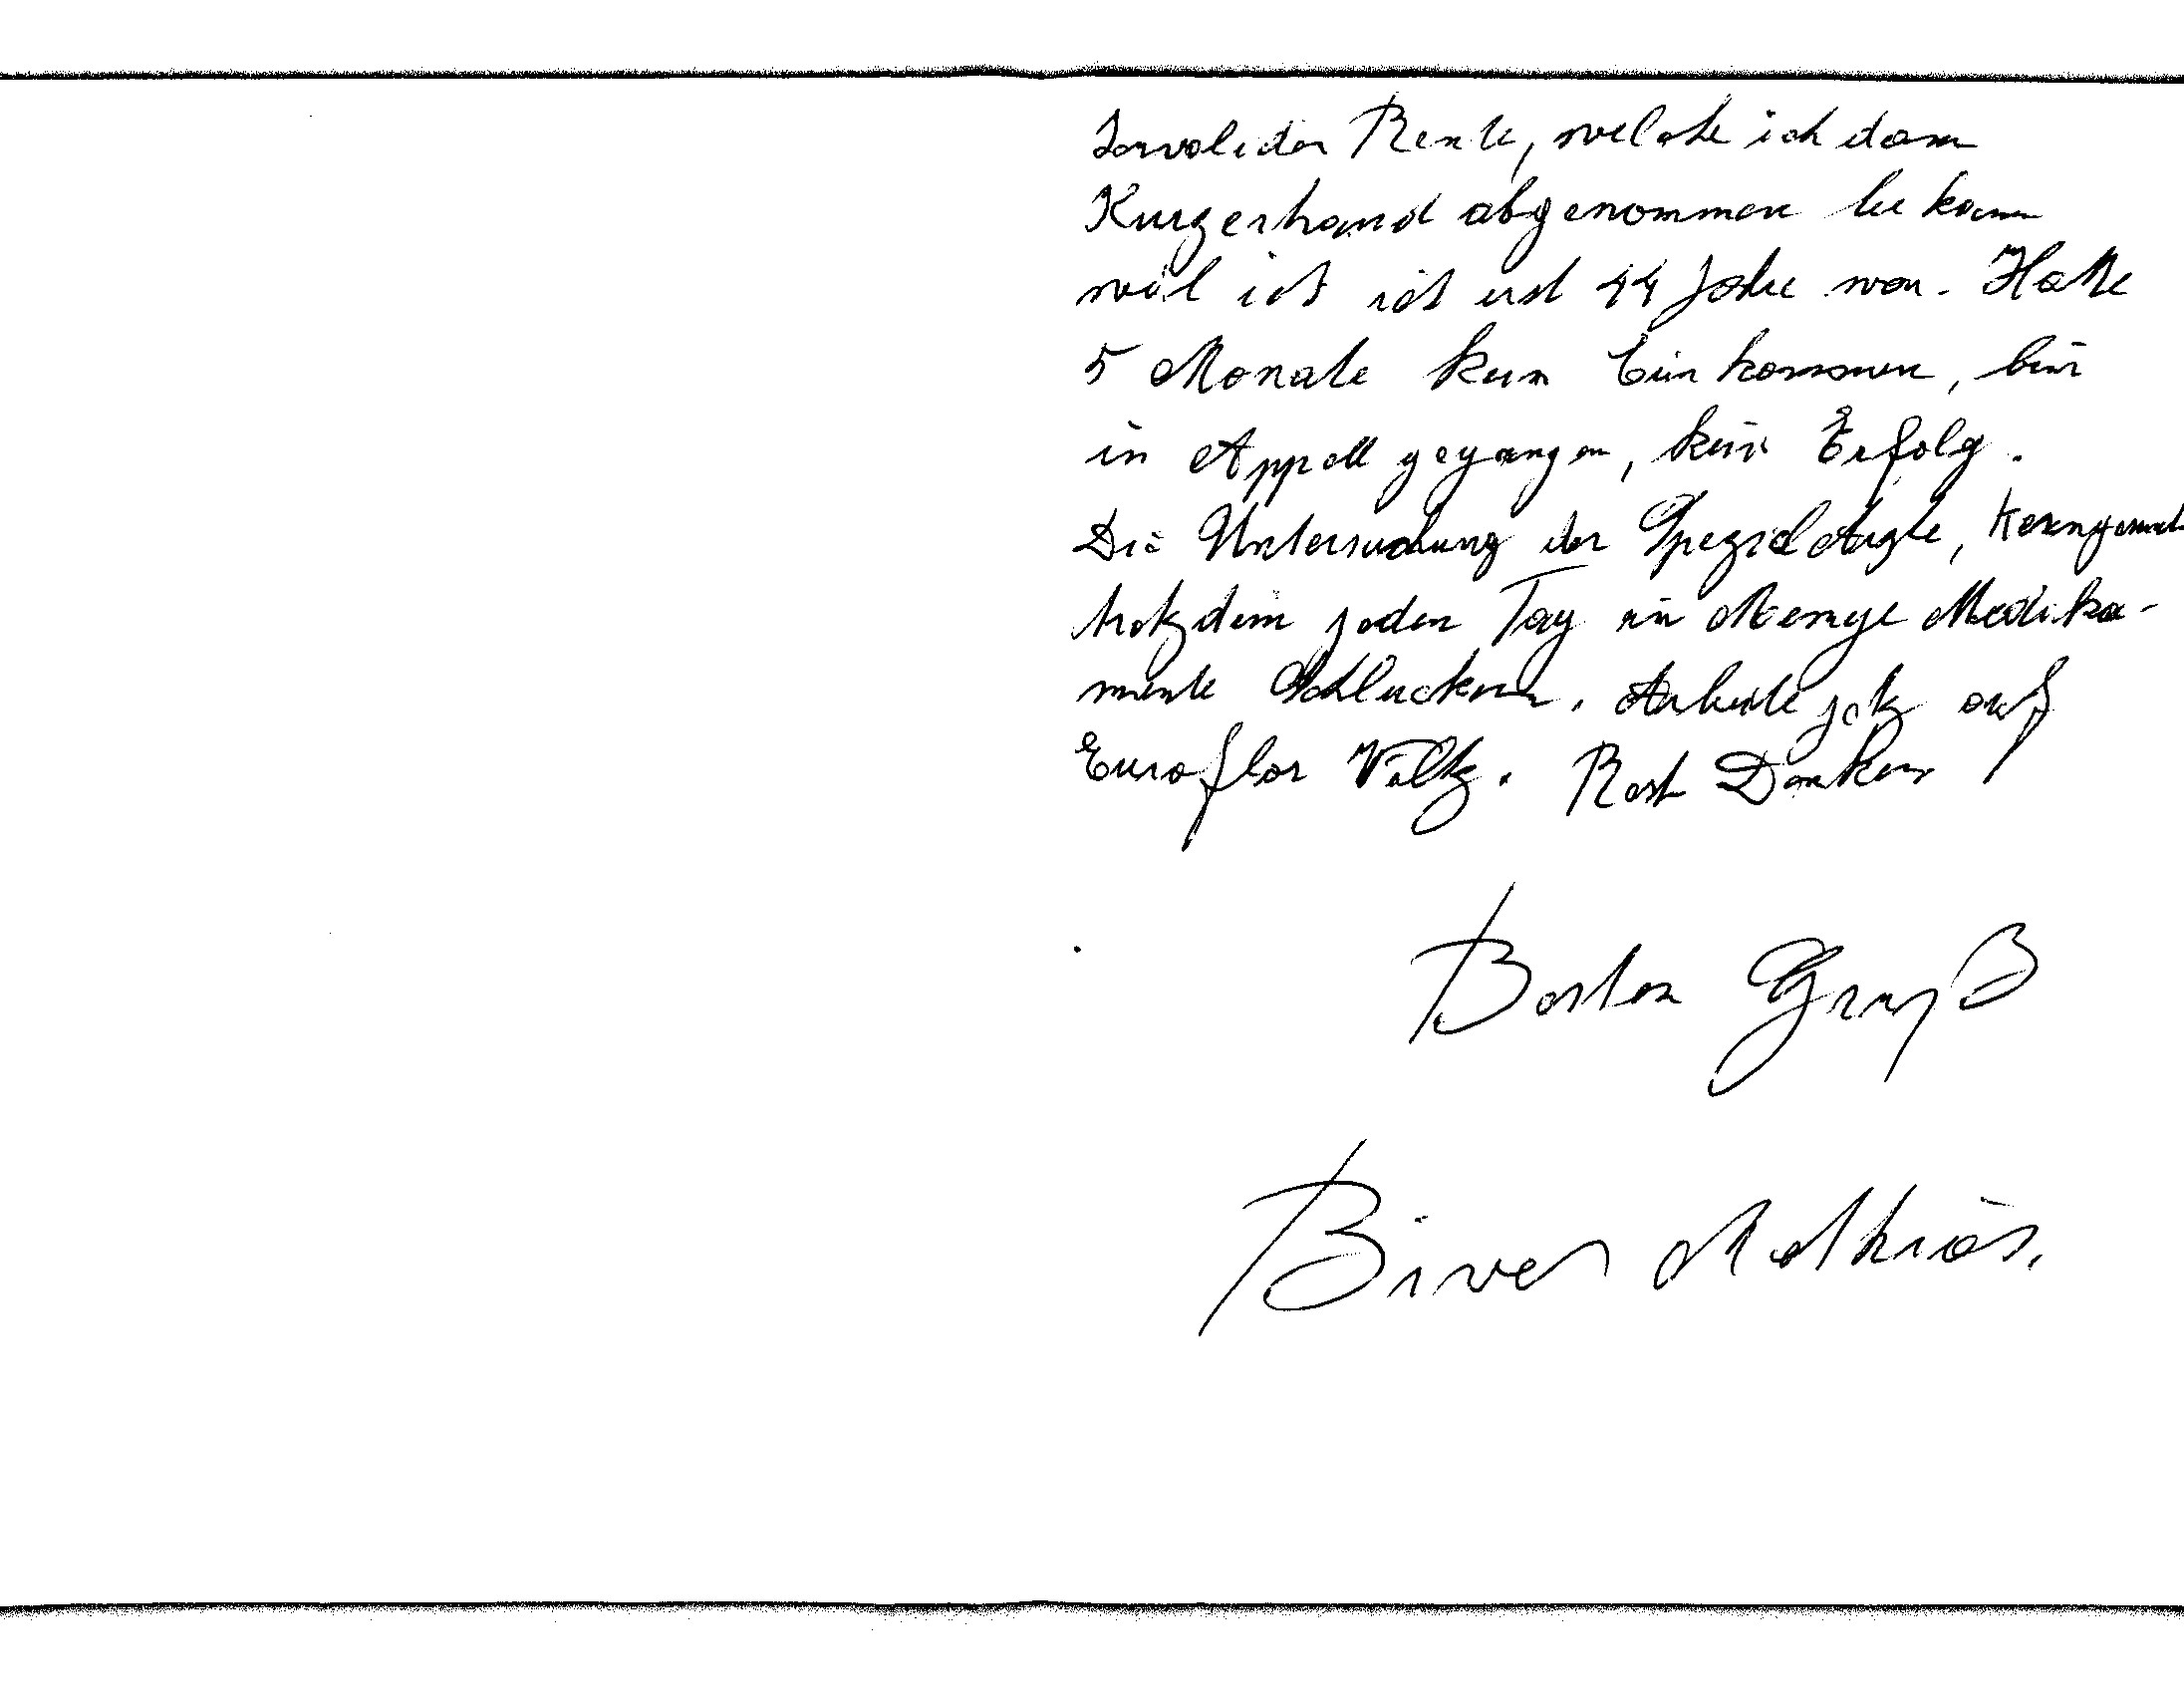 Invaliden Rente, welche ich dann
Kurzerhand abgenommen bekam
weil ich ich erst 44 Jahre war. Hatte
5 Monate kein Einkommen, bin
in Appell gegangen, kein Erfolg.
Die Untersuchung der Spezial Ärzte, Kerngesund
trotzdem jeden Tag ein Menge Medika-
mente Schlucken. Arbeite jetz auf
Euroflor Wiltz. Rest Danken
Besten Gruß
Biver Mathias.